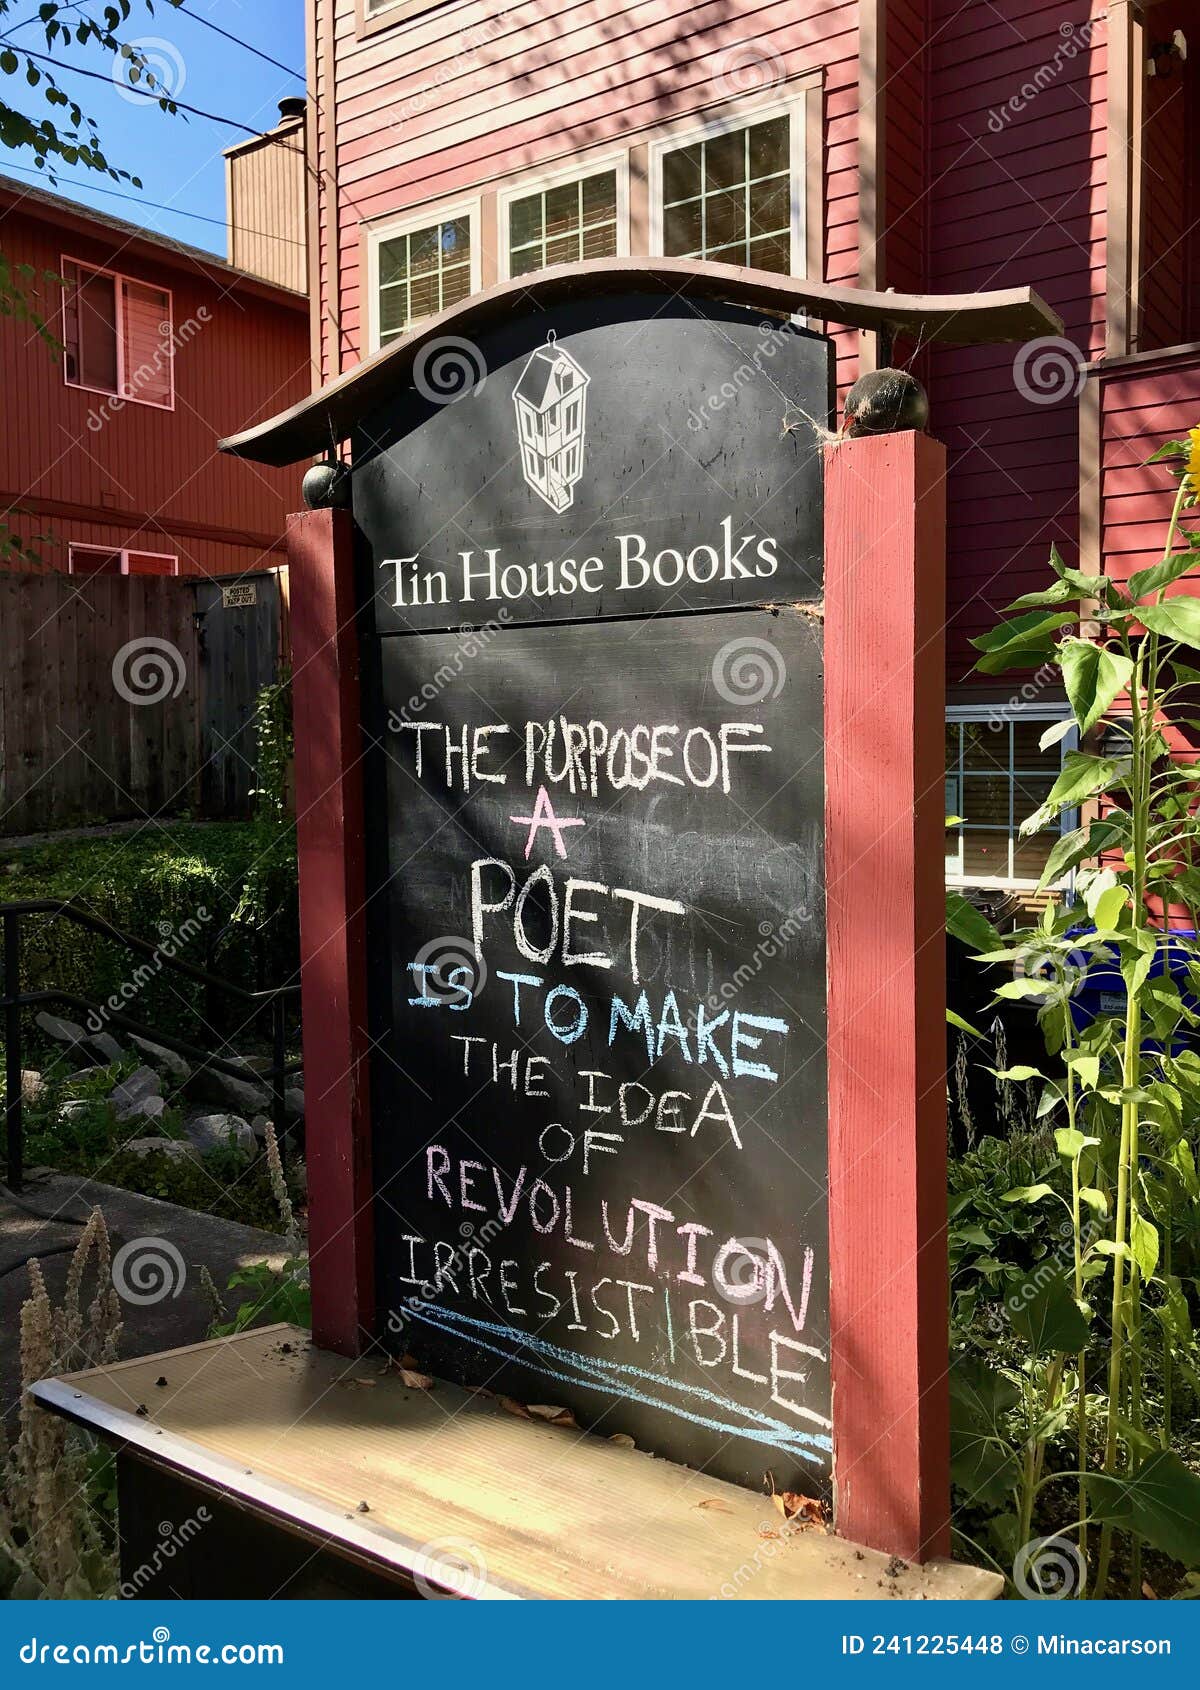 POSTED
KEEP OUT
Tin House Books
THE PURPOSE OF
A
POET
IS TO MAKE
THE IDEA
OF
REVOLUTION
IRRESISTIBLE
dreamstime.com
ID 241225448 © Minacarson